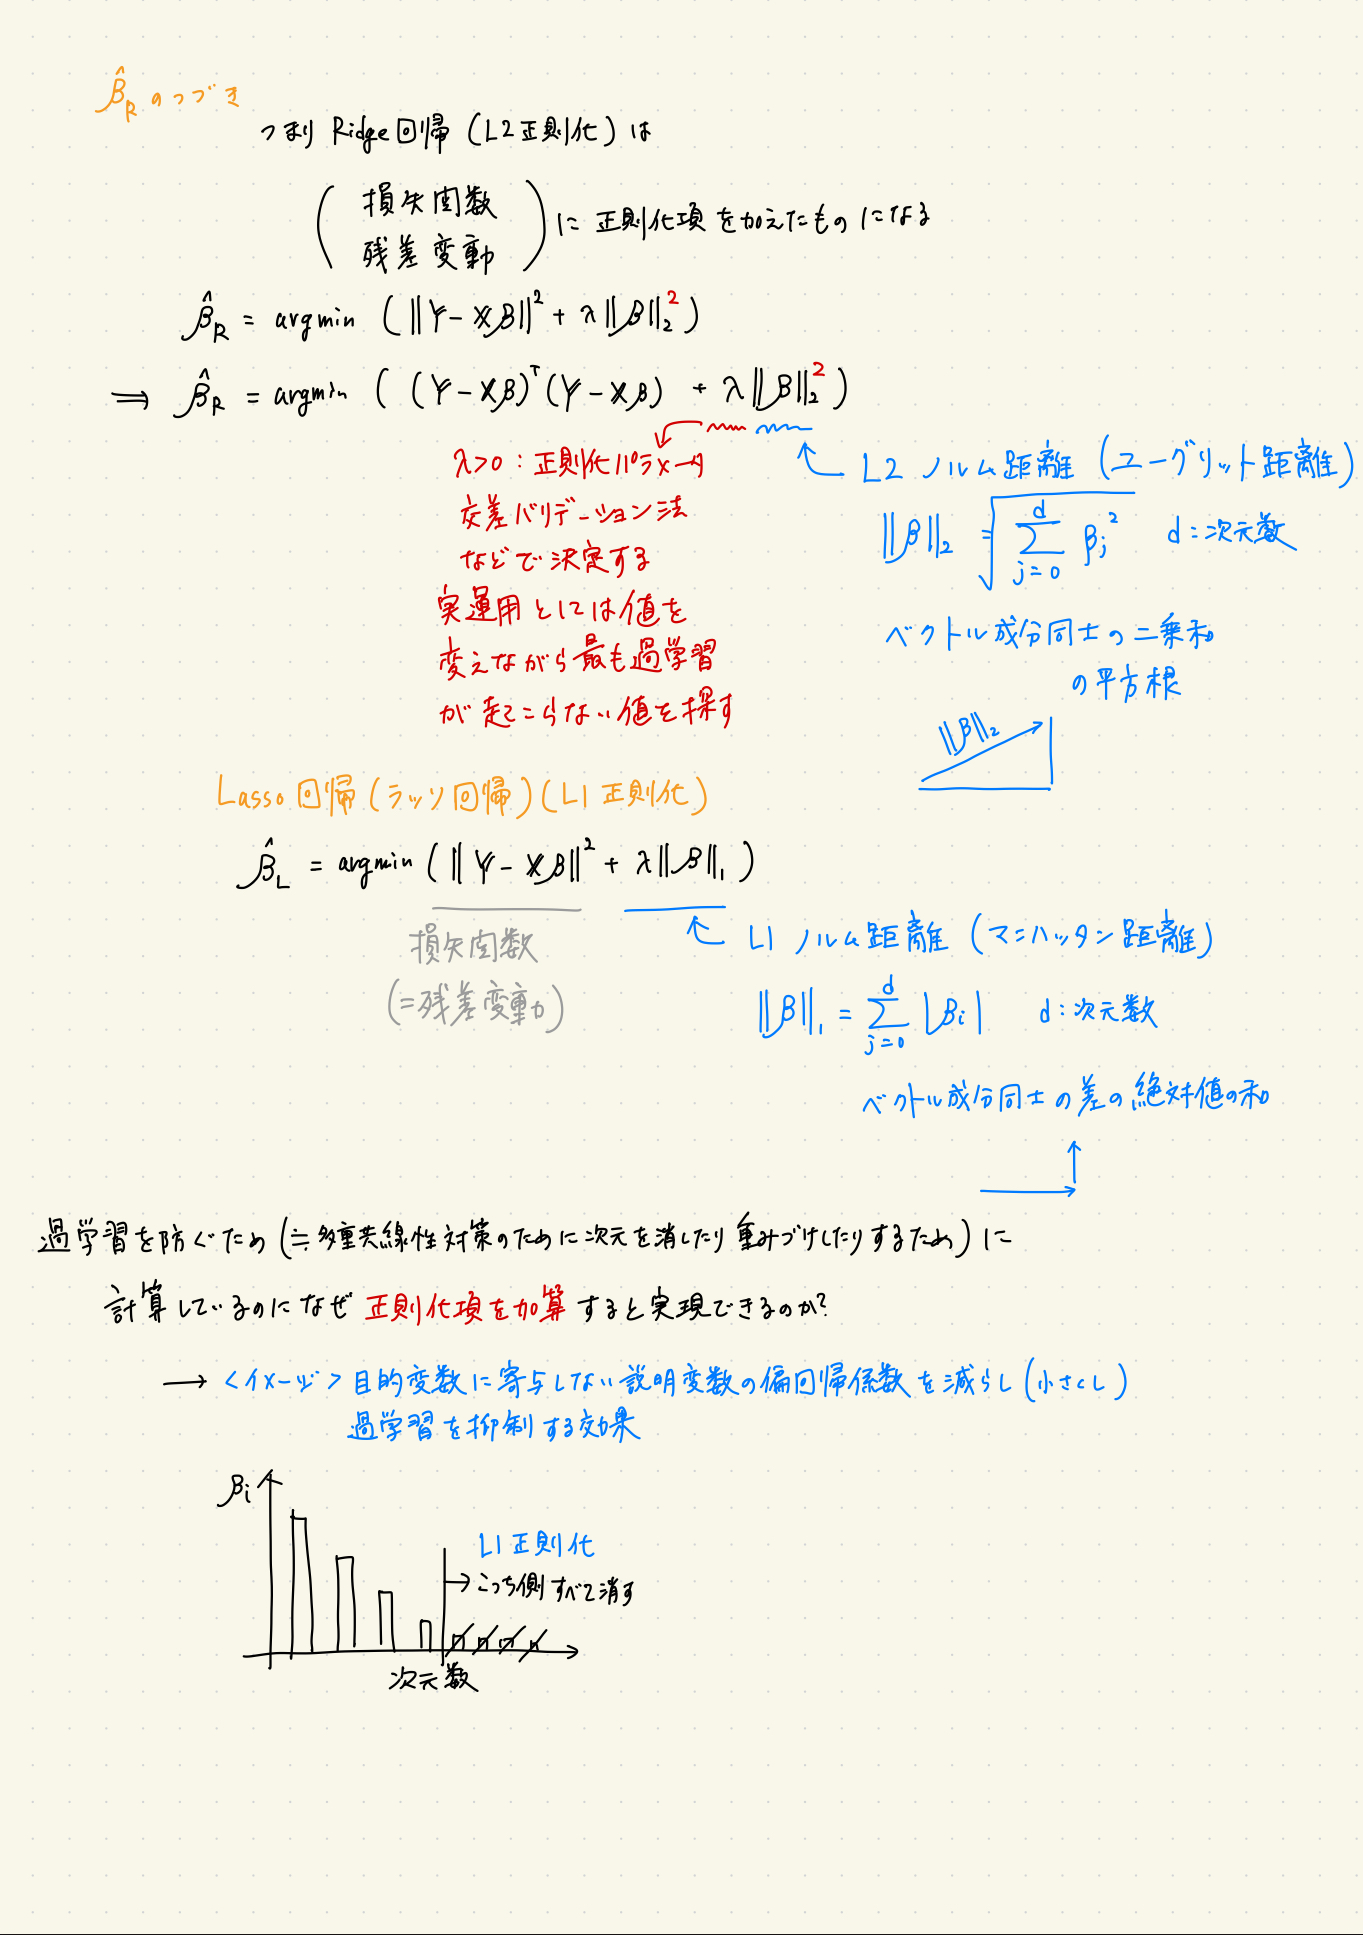 β̂_R のつづき
つまり Ridge回帰 (L2正則化) は
( 損失関数
残差変動 ) に 正則化項 を加えたもの になる
β̂_R = argmin ( ||Y - Xβ||² + λ||β||₂² )
⟹ β̂_R = argmin ( (Y - Xβ)ᵀ (Y - Xβ) + λ||β||₂² )
λ>0 : 正則化パラメータ
交差バリデーション法
などで決定する
実運用としては値を
変えながら最も過学習
が起こらない値を探す
L2 ノルム距離 (ユーグリット距離)
||β||₂ = √(∑_{j=0}^{d} β_j²) d : 次元数
ベクトル成分同士の二乗和
の平方根
||β||₂
Lasso 回帰 (ラッソ回帰) (L1 正則化)
β̂_L = argmin ( ||Y - Xβ||² + λ||β||₁ )
損失関数
(=残差変動)
L1 ノルム距離 (マンハッタン距離)
||β||₁ = ∑_{j=0}^{d} |β_i| d : 次元数
ベクトル成分同士の差の絶対値の和
過学習を防ぐため (≒多重共線性対策のために次元を消したり重みづけしたりするため) に
計算しているのになぜ 正則化項を加算 すると実現できるのか?
→ <イメージ> 目的変数に寄与しない説明変数の偏回帰係数を減らし (小さくし)
過学習を抑制する効果
β_i
L1 正則化
→ こっち側すべて消す
次元数